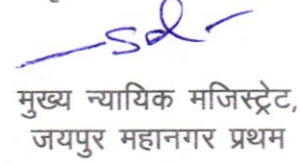 sd
मुख्य न्यायिक मजिस्ट्रेट,
जयपुर महानगर प्रथम